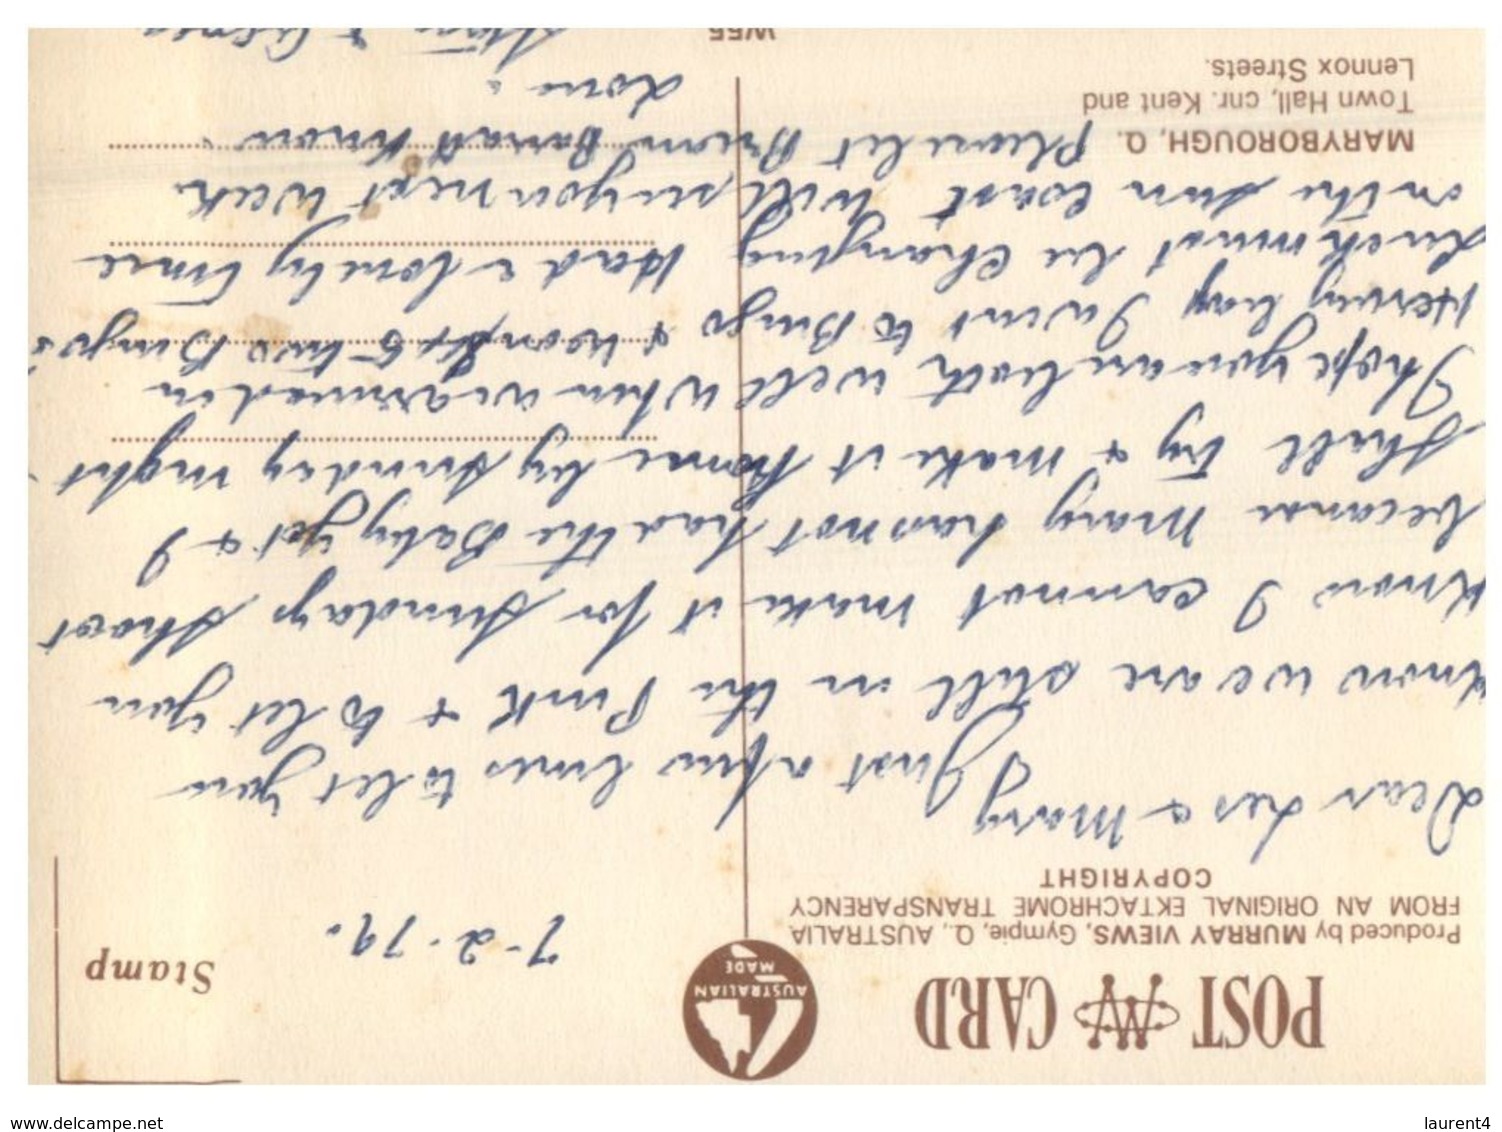 POST CARD
Produced by MURRAY VIEWS, Gympie, Q., AUSTRALIA.
FROM AN ORIGINAL EKTACHROME TRANSPARENCY
COPYRIGHT
AUSTRALIAN
MADE
Stamp
7-2-79.
Dear Les & Mary
Just a few lines to let you
know we are still in the Pink & to let you
know I cannot make it for Sundays Shoot
because Mary has not had the Baby yet & I
shall try & make it home by Sunday night.
I hope you are both well when we arrived in
Hervey bay I went to Bingo & won two Bingo's
luck must be changing Had a lovely time
on the Sun Coast will see you next week.
Please let Brian know.
Love
MARYBOROUGH, Q.
Town Hall, cnr. Kent and
Lennox Streets.
W55
www.delcampe.net
laurent4